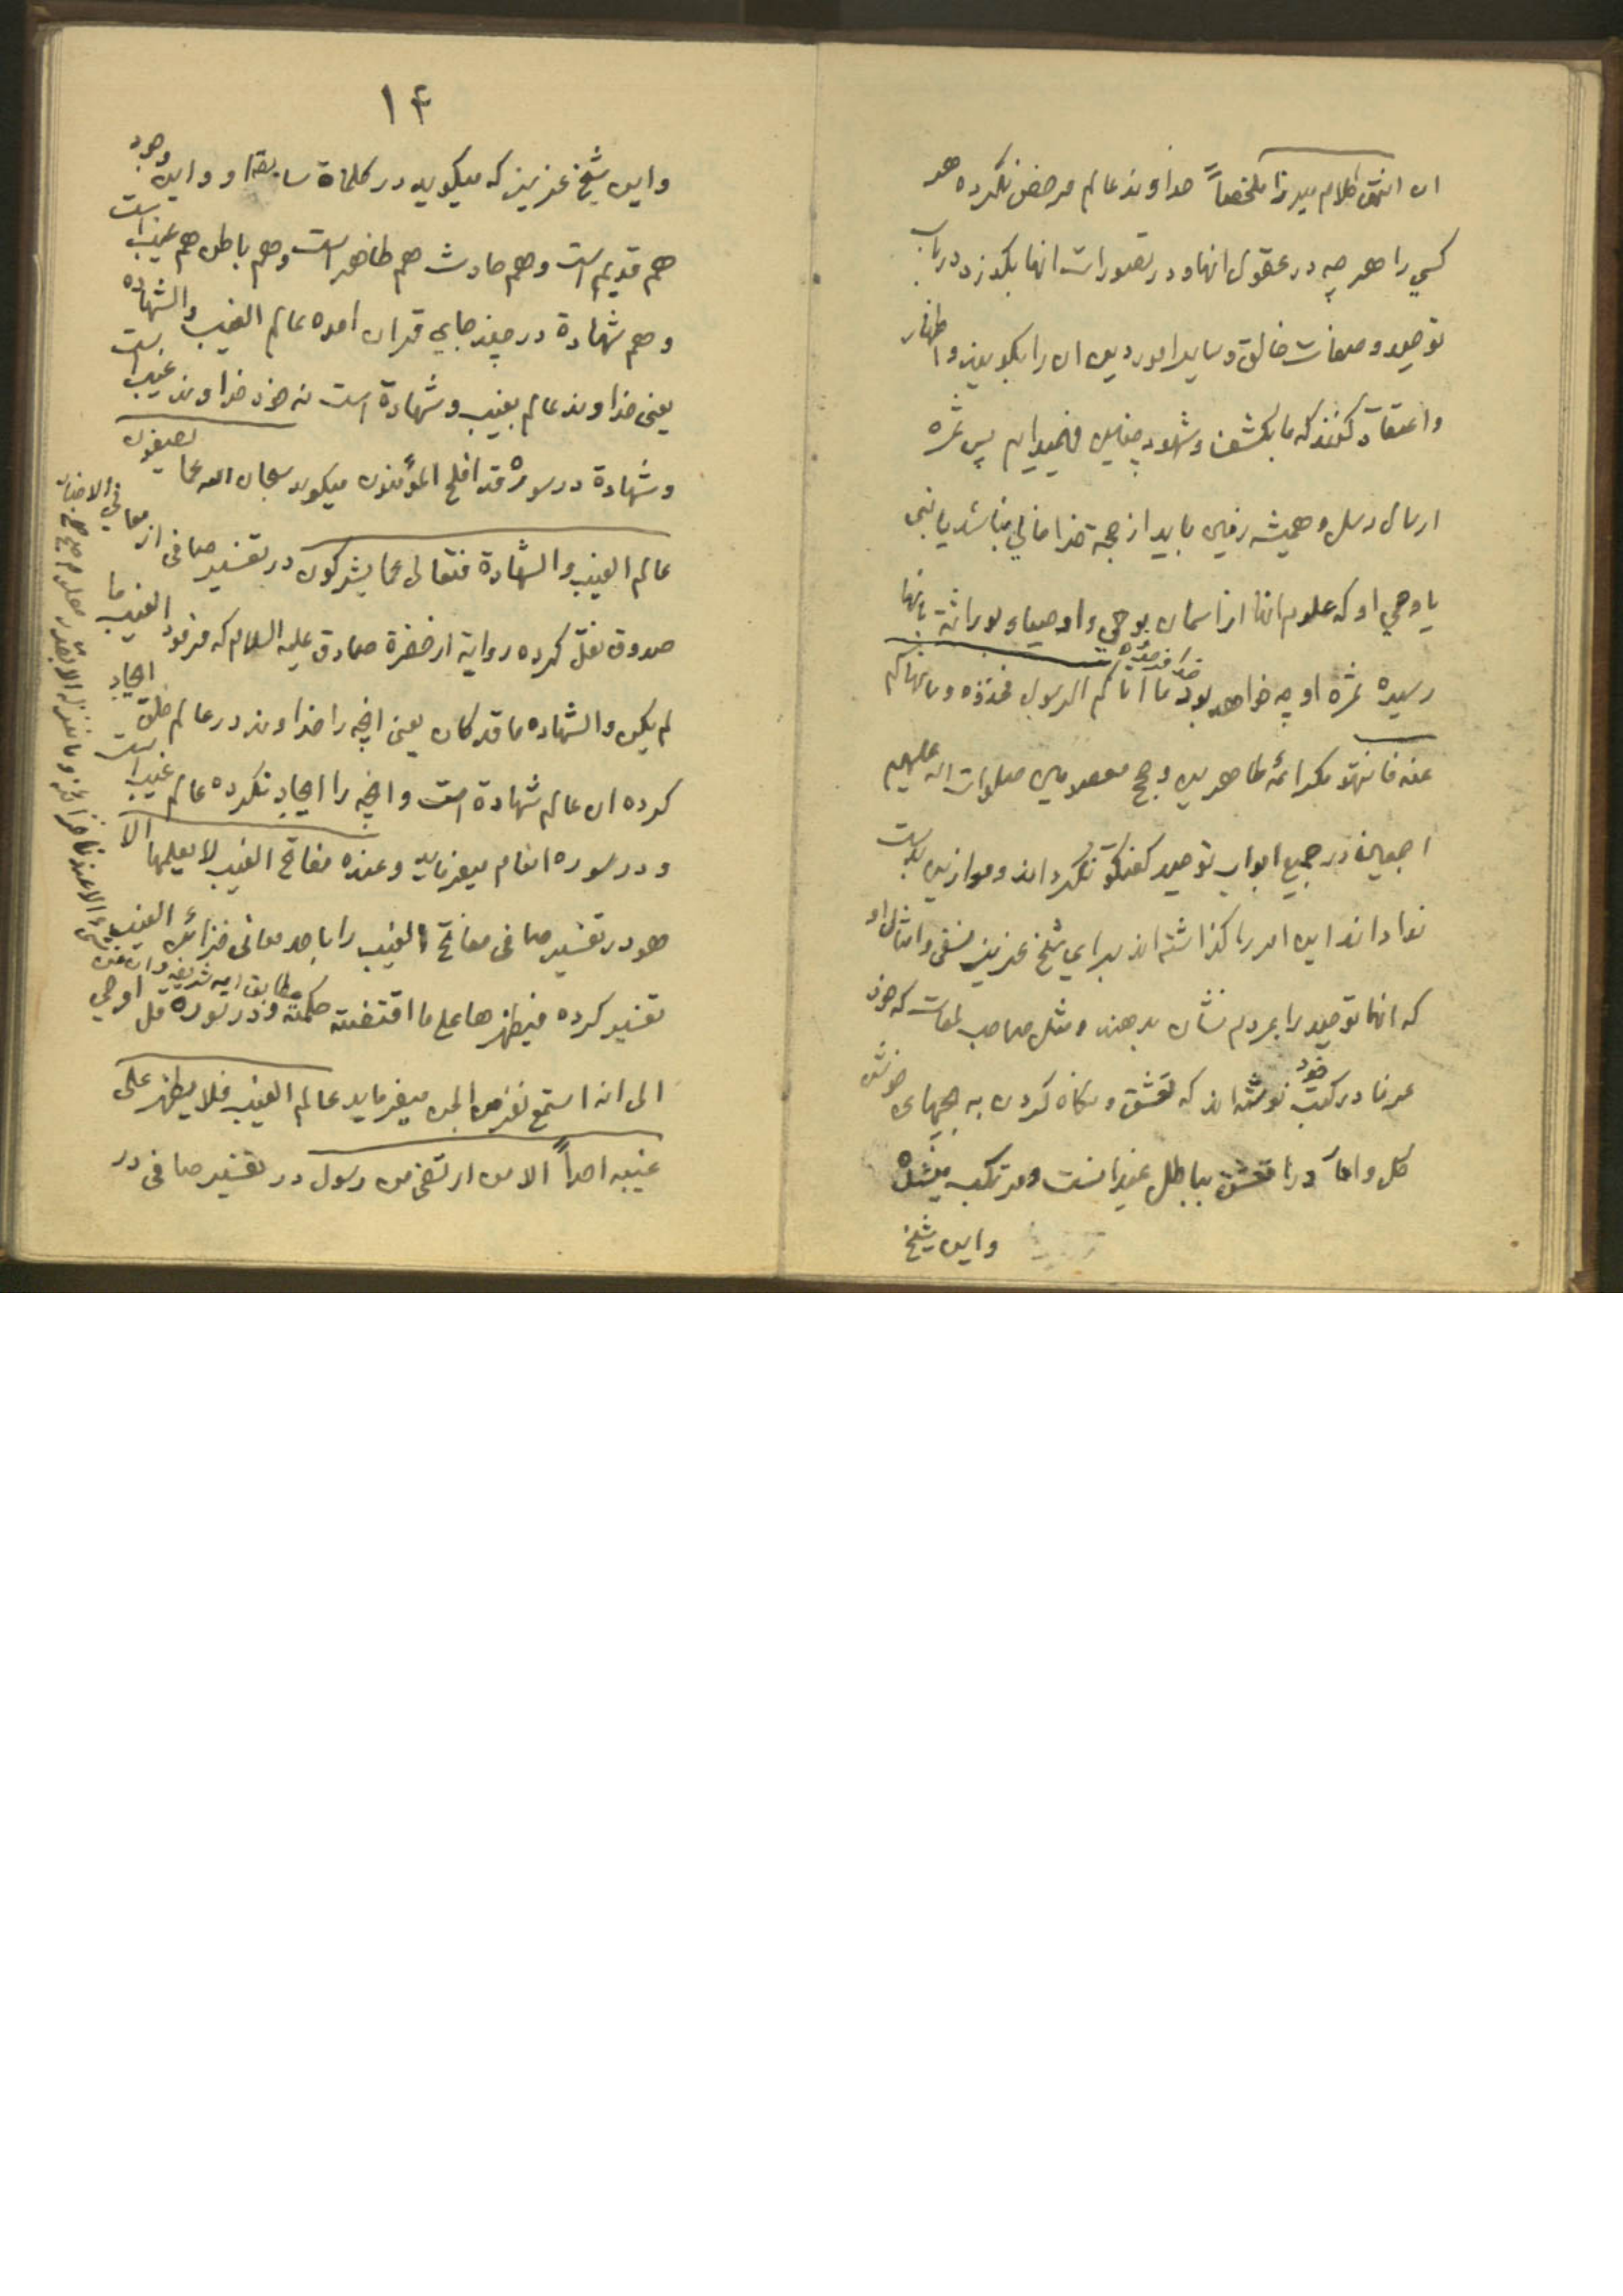 ان انتهی کلام میرزا ملخصاً خداوند عالم مرخص نکرده هر
کسی را هر چه در عقول انها و در تصورات انها بگذرد در باب
توحید و صفات خالق و سایر امور دین ان را بگویند و اظهار
واعتقاد کنند که ما بکشف و شهود چنین فهمیدایم پس ثمره
ارسال رسل و همیشه زمین باید از حجه خدا خالی نباشد یا نبی
یا وصی او که علوم انها از اسمان بوحی و اوصیاء بوراثة بانها
رسیده ثمره او چه خواهد بود خدا فرموده ما اتاکم الرسول فخذوه وما نهاکم
عنه فانتهوا مکر ائمه طاهرین و حجج معصومین صلوات الله علیهم
اجمعین در جمیع ابواب توحید کفتکو نکرده اند و موازین بدست
نداداند این امر را کذاشته اند برای شیخ عزیز نسفی و امثال او
که انها توحید را بمردم نشان بدهند و مثل صاحب لمعات که خود
عرفا در کتب خود نوشته اند که تعشق و نکاه کردن به بچهای خوش
کل و اما در را تعشق بباطل عیر انست و مرتکب میشده
واین شیخ
۱۴
واین شیخ عزیز که میکوید در کلماة سابقه او واین وجود
هم قدیم است و هم حادث هم ظاهر است و هم باطن هم غیب است
و هم شهادة در چند جای قران امده عالم الغیب والشهاده
یعنی خداوند عالم بغیب و شهادة است نه خود خداوند غیب است
و شهادة در سورهٔ قد افلح المؤمنون میکوید سبحان الله عما یصفون
عالم الغیب والشهادة فتعالی عما یشرکون در تفسیر صافی از معانی الاخبار
صدوق نقل کرده روایة از حضرة صادق علیه السلام که فرمود الغیب ما
لم یکن والشهاده ما قد کان یعنی انچه را خداوند در عالم خلق ایجاد
کرده ان عالم شهادة است و انچه را ایجاد نکرده عالم غیب است
و در سوره انعام میفرماید وعنده مفاتح الغیب لا یعلمها الا
هو در تفسیر صافی مفاتح الغیب را باحد معانی خزائن الغیب
تفسیر کرده فیظهرها علی ما اقتضته حکمته و در سوره قل اوحی
مطابق ایه شریفه وان من شیء الا عندنا خزائنه وما ننزله الا بقدر معلوم
الی انه استمع نفر من الجن میفرماید عالم الغیب فلا یظهر علی
غیبه احداً الا من ارتضی من رسول در تفسیر صافی در